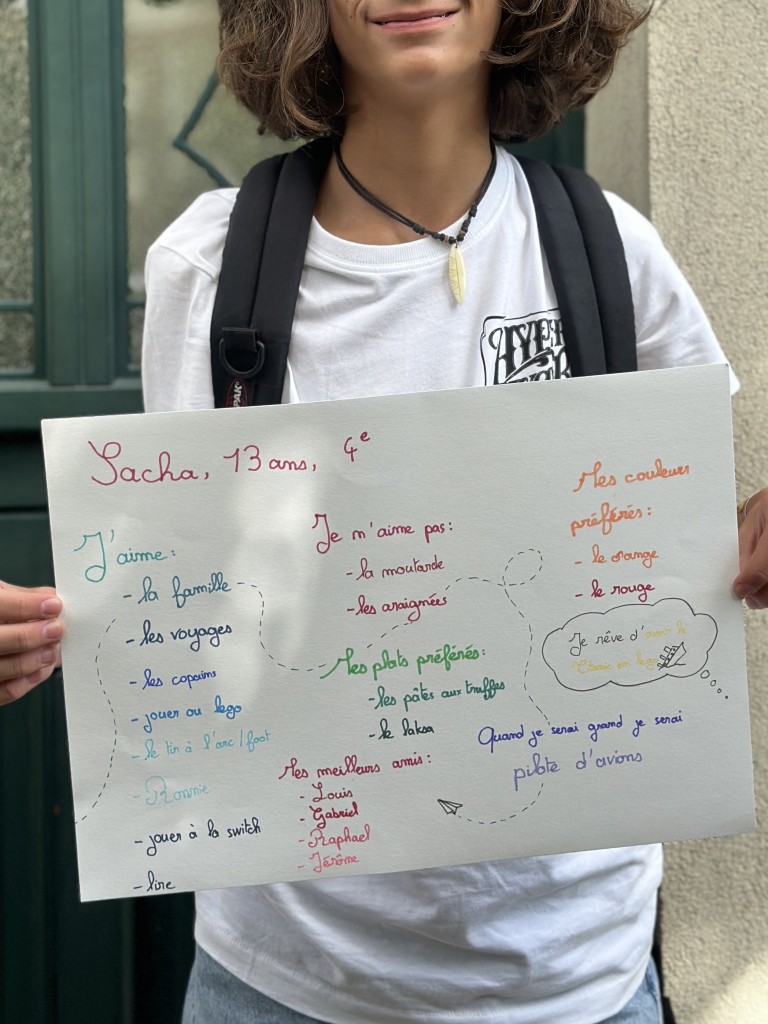 HYPER
PAK
Sacha, 13 ans, 4e
J'aime:
- la famille
- les voyages
- les copains
- jouer au lego
- le tir à l'arc / foot
- Ronnie
- jouer à la switch
- lire
Je n'aime pas:
- la moutarde
- les araignées
Mes plats préférés:
- les pâtes aux truffes
- le laksa
Mes meilleurs amis:
- Louis
- Gabriel
- Raphael
- Jérôme
Mes couleurs
préférés:
- le orange
- le rouge
Je rêve d'avoir le
Titanic en lego
Quand je serai grand je serai
pilote d'avions